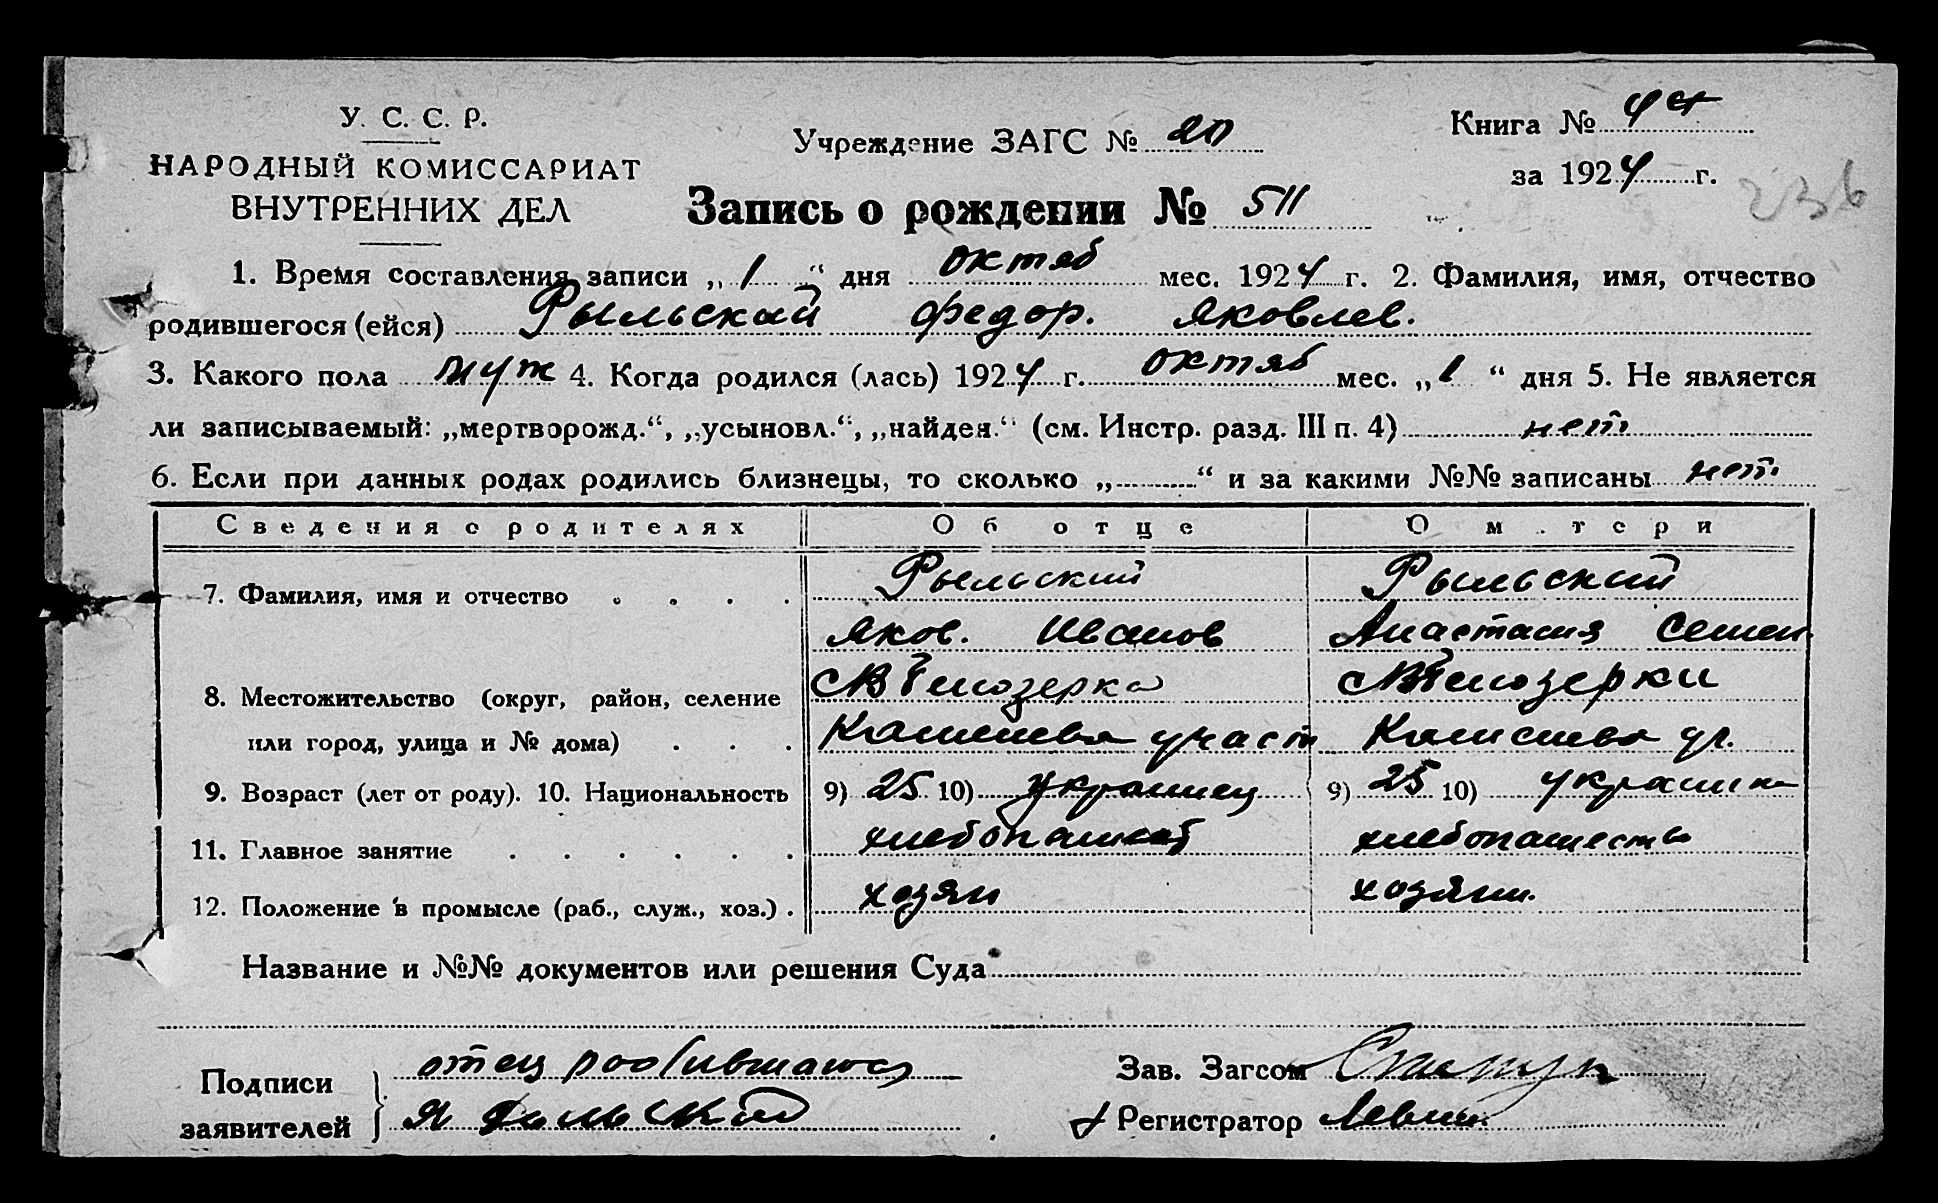 У. С. С. Р.
НАРОДНЫЙ КОМИССАРИАТ
ВНУТРЕННИХ ДЕЛ
Учреждение ЗАГС № 20
Книга № 4
за 1924 г.
236
Запись о рождении № 511
1. Время составления записи „ 1 “ дня октяб мес. 1924 г. 2. Фамилия, имя, отчество
родившегося (ейся) Рыльский Федор. Яковлев.
3. Какого пола муж 4. Когда родился (лась) 1924 г. октяб мес. „ 1 “ дня 5. Не является
ли записываемый: „мертворожд.“, „усыновл.“, „найден.“ (см. Инстр. разд. III п. 4) нет
6. Если при данных родах родились близнецы, то сколько „ “ и за какими №№ записаны нет
Сведения о родителях Об отце О м тери
7. Фамилия, имя и отчество Рыльский Рыльский
Яков. Иванов Анастасия Семен
8. Местожительство (округ, район, селение Белозерка Белозерки
или город, улица и № дома) участ
9. Возраст (лет от роду). 10. Национальность 9) 25 10) украинец 9) 25 10) украинк
11. Главное занятие хлебопашеств хлебопашество
12. Положение в промысле (раб., служ., хоз.) хозяин хозяин.
Название и №№ документов или решения Суда
Подписи заявителей
отец
Я Рыльский
Зав. Загсом
Регистратор Левин